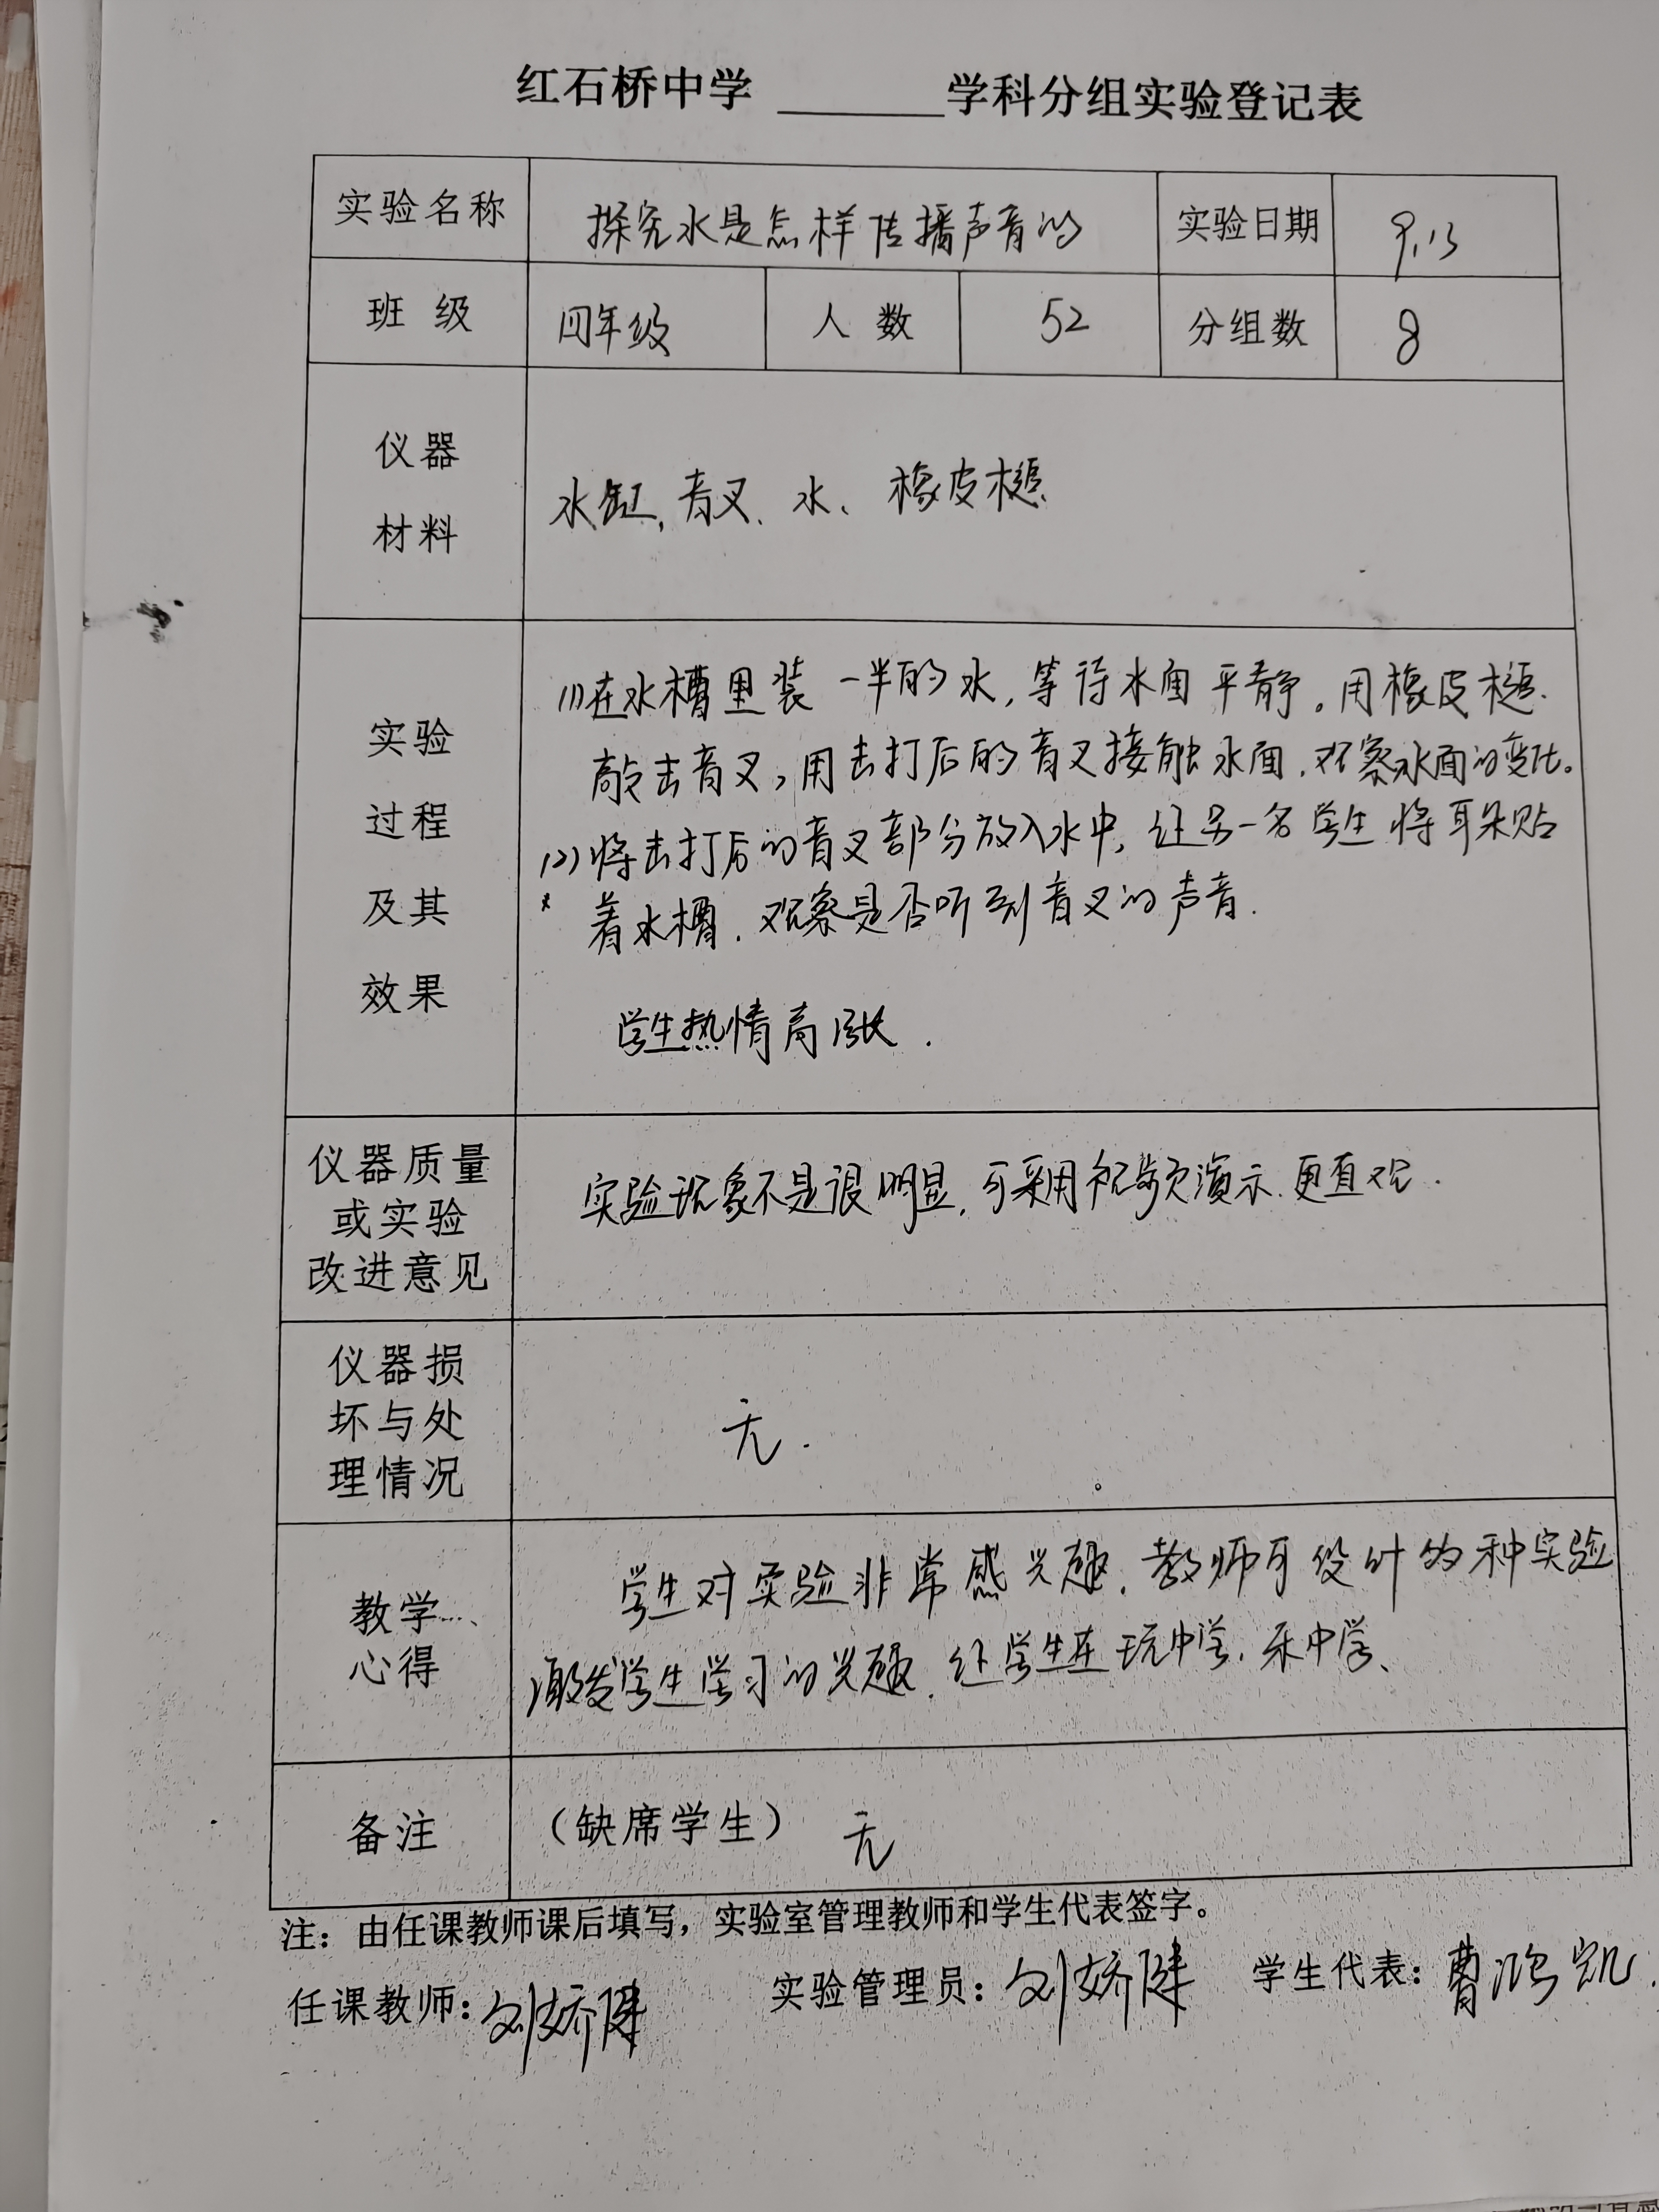 红石桥中学 ______学科分组实验登记表
实验名称 探究水是怎样传播声音的 实验日期 9.13
班 级 四年级 人 数 52 分组数 8
仪器
材料
水缸,音叉、水、橡皮槌
实验
过程
及其
效果
(1)在水槽里装一半的水,等待水面平静。用橡皮槌
敲击音叉,用击打后的音叉接触水面,观察水面的变化。
(2)将击打后的音叉部分放入水中,让另一名学生将耳朵贴
着水槽.观察是否听到音叉的声音.
学生热情高涨.
仪器质量
或实验
改进意见
实验现象不是很明显,可采用视频演示.更直观.
仪器损
坏与处
理情况
无.
教学
心得
学生对实验非常感兴趣.教师可设计的种实验
激发学生学习的兴趣.让学生在玩中学.乐中学、
备注 (缺席学生) 无
注:由任课教师课后填写,实验室管理教师和学生代表签字。
任课教师:刘娇 实验管理员:刘娇 学生代表:曹鸿凯